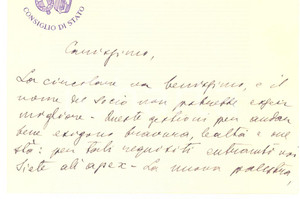 CONSIGLIO DI STATO
Carissimo,
La circolare va benissimo, e il
nome del socio non potrebbe esser
migliore - Queste gestioni per andar
bene esigono bravura, lealtà e
per tali requisiti entrambi voi
siete all'apex - La nuova palestra,